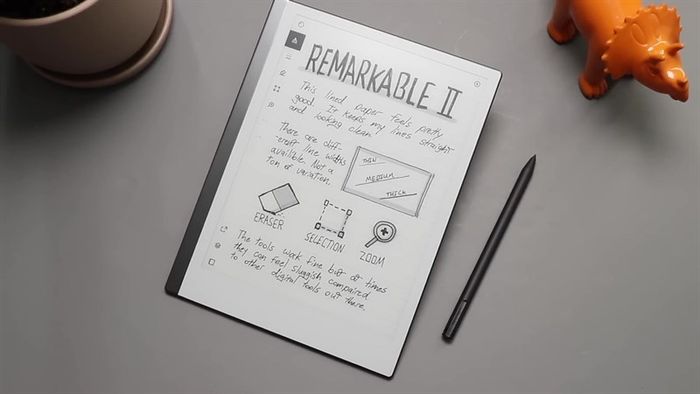 REMARKABLE II
This lined paper feels pretty
good. It keeps my lines straight
and looking clean
There are diff-
erent line widths
availible. Not a
ton of variation.
THIN
MEDIUM
THICK
ERASER
SELECTION
ZOOM
The tools work fine but at times
they can feel sluggish compaired
to other digital tools out there.